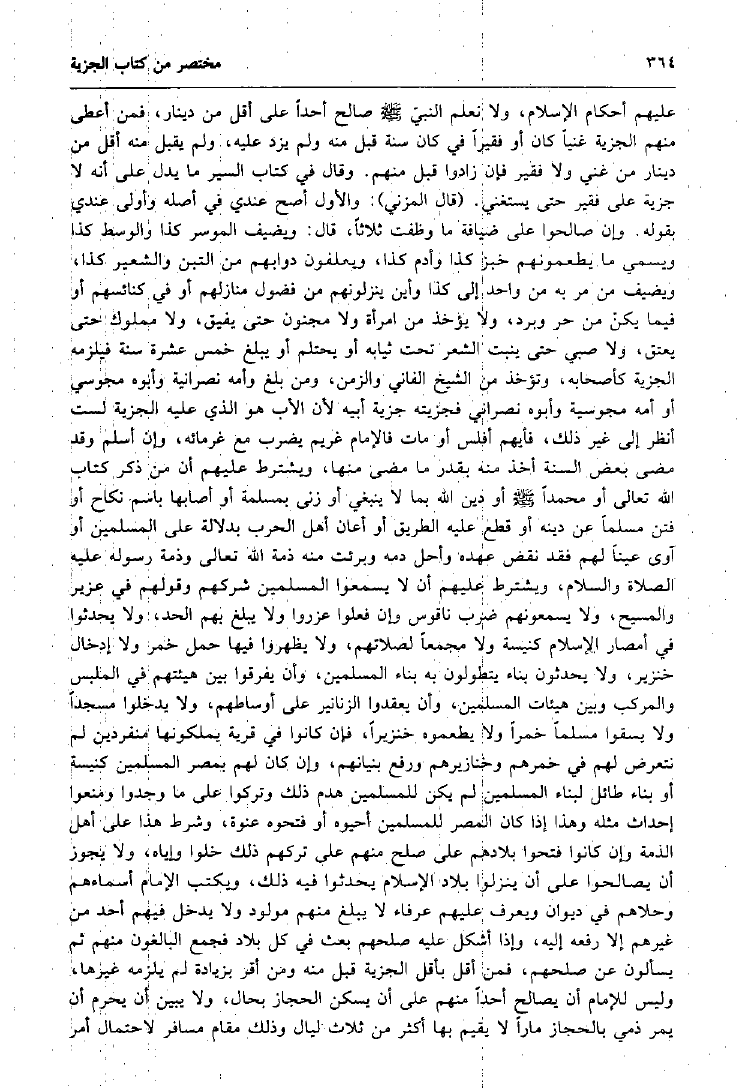 ٣٦٤
مختصر من كتاب الجزية
عليهم أحكام الإسلام، ولا نعلم النبيّ ﷺ صالح أحداً على أقل من دينار، فمن أعطى
منهم الجزية غنياً كان أو فقيراً في كان سنة قبل منه ولم يزد عليه، ولم يقبل منه أقل من
دينار من غني ولا فقير فإن زادوا قبل منهم. وقال في كتاب السير ما يدل على أنه لا
جزية على فقير حتى يستغني. (قال المزني): والأول أصح عندي في أصله وأولى عندي
بقوله. وإن صالحوا على ضيافة ما وظفت ثلاثاً، قال: ويضيف الموسر كذا والوسط كذا
ويسمي ما يطعمونهم خبز كذا وأدم كذا، ويعلفون دوابهم من التبن والشعير كذا،
ويضيف من مر به من واحد إلى كذا وأين ينزلونهم من فضول منازلهم أو في كنائسهم أو
فيما يكنّ من حر وبرد، ولا يؤخذ من امرأة ولا مجنون حتى يفيق، ولا مملوك حتى
يعتق، ولا صبي حتى ينبت الشعر تحت ثيابه أو يحتلم أو يبلغ خمس عشرة سنة فيلزمه
الجزية كأصحابه، وتؤخذ من الشيخ الفاني والزمن، ومن بلغ وأمه نصرانية وأبوه مجوسي
أو أمه مجوسية وأبوه نصراني فجزيته جزية أبيه لأن الأب هو الذي عليه الجزية لست
أنظر إلى غير ذلك، فأيهم أفلس أو مات فالإمام غريم يضرب مع غرمائه، وإن أسلم وقد
مضى بعض السنة أخذ منه بقدر ما مضى منها، ويشترط عليهم أن من ذكر كتاب
الله تعالى أو محمداً ﷺ أو دين الله بما لا ينبغي أو زنى بمسلمة أو أصابها باسم نكاح أو
فتن مسلماً عن دينه أو قطع عليه الطريق أو أعان أهل الحرب بدلالة على المسلمين أو
آوى عيناً لهم فقد نقض عهده وأحل دمه وبرئت منه ذمة الله تعالى وذمة رسوله عليه
الصلاة والسلام، ويشترط عليهم أن لا يسمعوا المسلمين شركهم وقولهم في عزير
والمسيح، ولا يسمعونهم ضرب ناقوس وإن فعلوا عزروا ولا يبلغ بهم الحد، ولا يحدثوا
في أمصار الإسلام كنيسة ولا مجمعاً لصلاتهم، ولا يظهروا فيها حمل خمر ولا إدخال
خنزير، ولا يحدثون بناء يتطولون به بناء المسلمين، وأن يفرقوا بين هيئتهم في الملبس
والمركب وبين هيئات المسلمين، وأن يعقدوا الزنانير على أوساطهم، ولا يدخلوا مسجداً
ولا يسقوا مسلماً خمراً ولا يطعموه خنزيراً، فإن كانوا في قرية يملكونها منفردين لم
نتعرض لهم في خمرهم وخنازيرهم ورفع بنيانهم، وإن كان لهم بمصر المسلمين كنيسة
أو بناء طائل لبناء المسلمين لم يكن للمسلمين هدم ذلك وتركوا على ما وجدوا ومنعوا
إحداث مثله وهذا إذا كان المصر للمسلمين أحيوه أو فتحوه عنوة، وشرط هذا على أهل
الذمة وإن كانوا فتحوا بلادهم على صلح منهم على تركهم ذلك خلوا وإياه، ولا يجوز
أن يصالحوا على أن ينزلوا بلاد الإسلام يحدثوا فيه ذلك، ويكتب الإمام أسماءهم
وحلاهم في ديوان ويعرف عليهم عرفاء لا يبلغ منهم مولود ولا يدخل فيهم أحد من
غيرهم إلا رفعه إليه، وإذا أشكل عليه صلحهم بعث في كل بلاد فجمع البالغون منهم ثم
يسألون عن صلحهم، فمن أقل بأقل الجزية قبل منه ومن أقر بزيادة لم يلزمه غيرها،
وليس للإمام أن يصالح أحداً منهم على أن يسكن الحجاز بحال، ولا يبين أن يحرم أن
يمر ذمي بالحجاز ماراً لا يقيم بها أكثر من ثلاث ليال وذلك مقام مسافر لاحتمال أمر